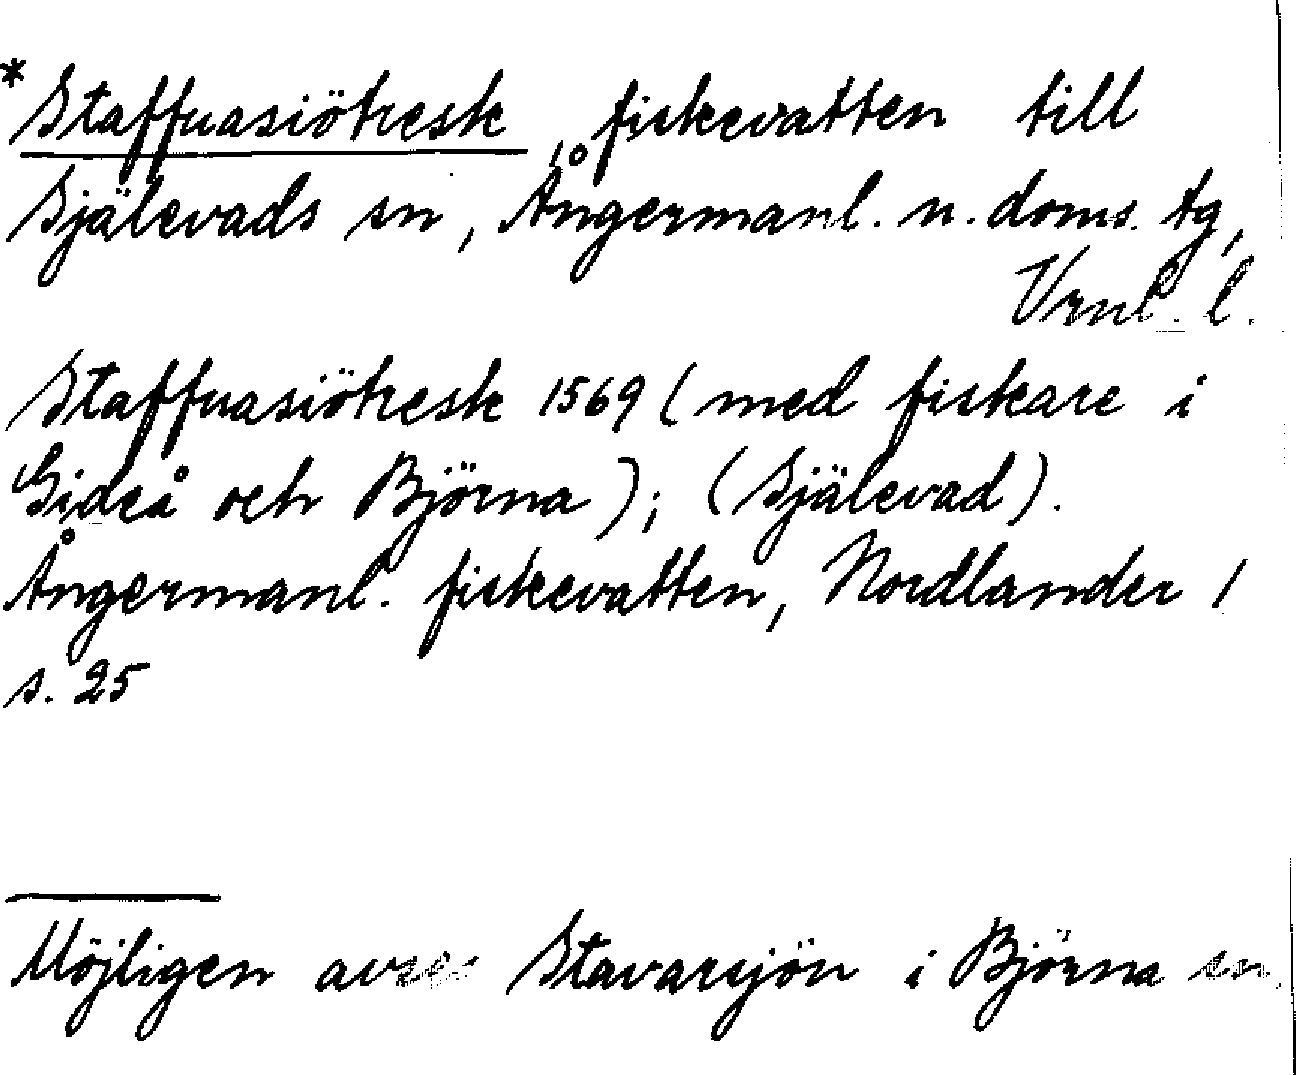 *Staffuasiötresk, fiskevatten till
Själevads sn, Ångermanl. n. doms. tg,
Vrnl. l.
Staffuasiötresk 1569 (med fiskare i
Gideå och Björna); (Själevad).
Ångermanl. fiskevatten, Nordlander 1
s. 25
Möjligen avses Stavarsjön i Björna sn.